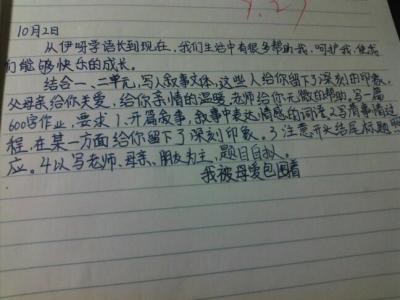 9.29
10月2日
从伊呀学语长到现在,我们生活中有很多帮助我,呵护我,使我
们能够快乐的成长。
结合一、二单元,写人叙事文体,这些人给你留下了深刻的印象。
父母亲给你关爱,给你亲情的温暖,老师给你无微的帮助。写一篇
600字作业,要求1、开篇叙事,叙事中表达情感的词语。2、写清事情过
程,在某一方面给你留下了深刻印象。3、注意开头结尾标题
应。4、以写老师、母亲、朋友为主,题目自拟。
我被母爱包围着